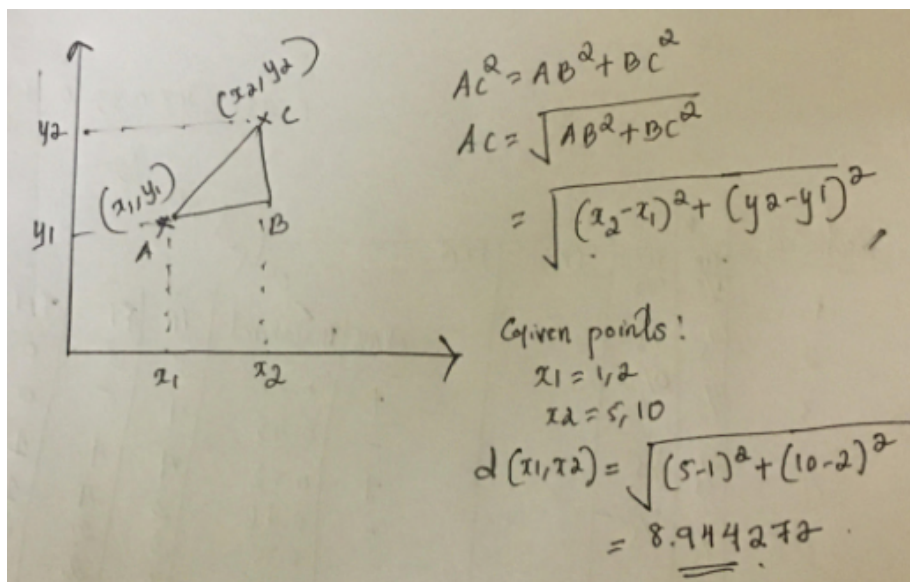 y2
(x2, y2)
C
(x1, y1)
y1
A
B
x1
x2
AC² = AB² + BC²
AC = √AB² + BC²
= √(x₂-x₁)² + (y2-y1)²
Given points:
x1 = 1, 2
x2 = 5, 10
d (x1, x2) = √(5-1)² + (10-2)²
= 8.944272